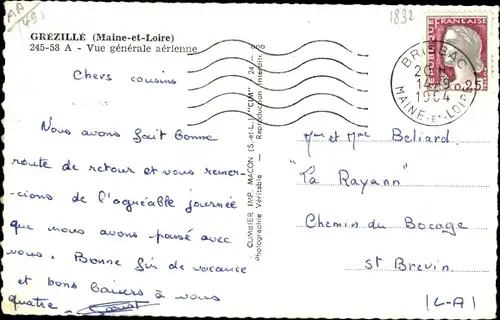 AA
(49)
1832
GRÉZILLÉ (Maine-et-Loire)
245-53 A - Vue générale aérienne
Chers cousins
Nous avons fait bonne
route de retour et vous remer-
cions de l'agréable journée
que nous avons passé avec
vous. Bonne fin de vacance
et bons baisers à vous
quatre
COMBIER IMP. MACON (S.-et-L.) "CIM"
Photographie Véritable - Reproduction Interdite
FRANÇAISE
0,25
BRISSAC
20 H
1964
MAINE-ET-LOIRE
Mr et Mme Beliard
"La Rayann"
Chemin du Bocage
St Brevin
(L-A)